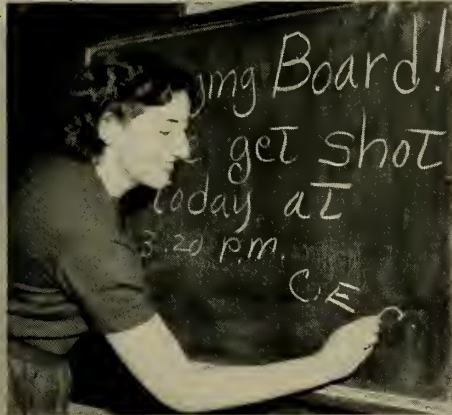 Board!
get shot
today at
3.20 p.m.
C.E